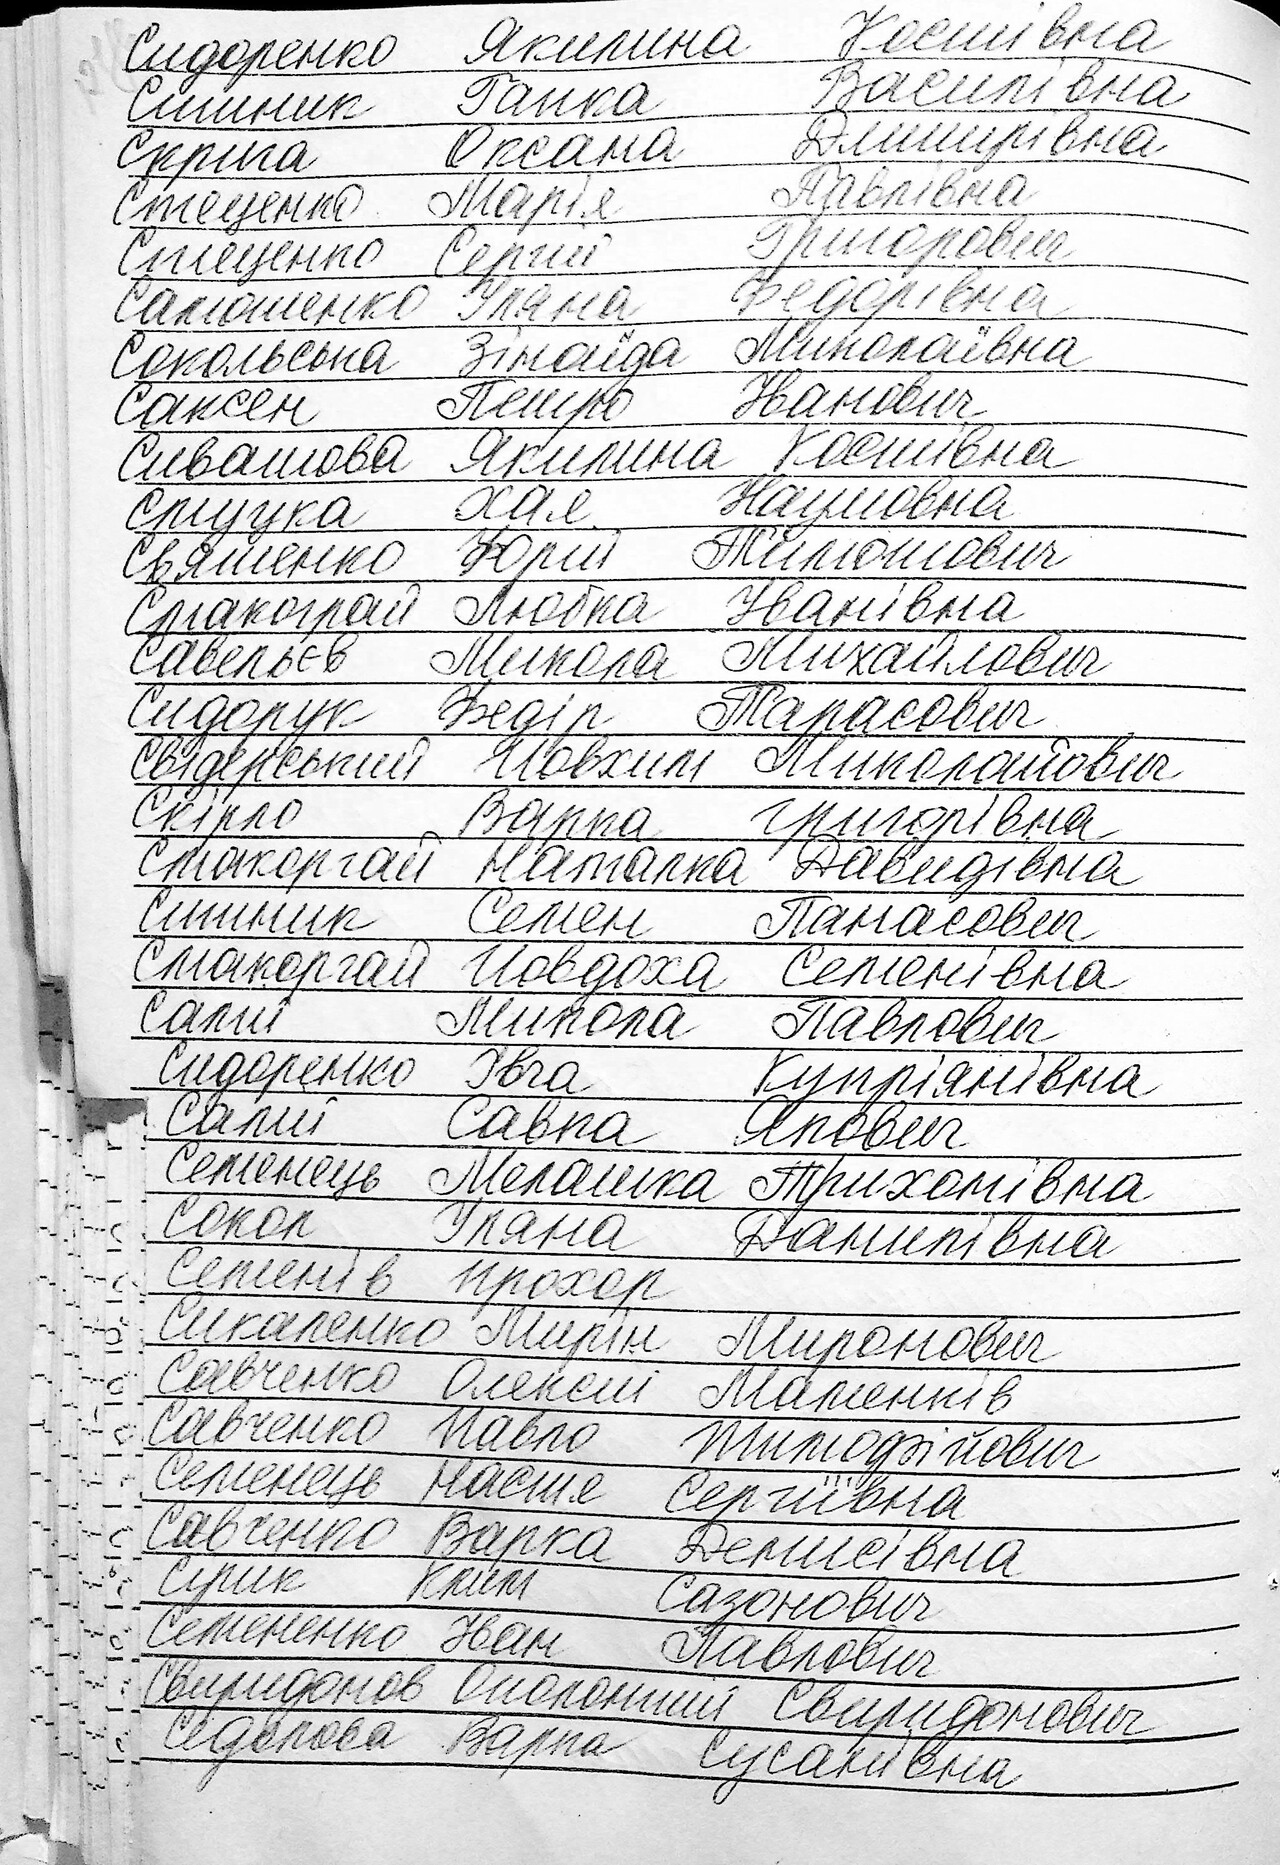 Сидоренко Якилина Костівна
Ситник Гапка Василівна
Скрига Оксана Дмитрівна
Стеценко Марія Павлівна
Стеценко Сергій Григорович
Самошенко Уляна Федорівна
Сокольська Зінаїда Миколаївна
Саксен Петро Іванович
Сивашова Якилина Костівна
Стуцка Хая Наумовна
Святенко Юрій Тимошович
Стакограй Любка Іванівна
Савельєв Микола Михайлович
Сидорук Федір Тарасович
Свідерський Йовхим Миколайович
Скірло Варка Григорівна
Стакоргай Наталка Давидівна
Ситник Семен Панасович
Стакоргай Йовдоха Семенівна
Салій Микола Павлович
Сидоренко Івга Купріянівна
Салій Савка Якович
Семенець Мелашка Трихонівна
Сокол Уляна Данилівна
Семенів Прохор
Сикаленко Мирін Миронович
Савченко Олексій
Савченко Павло Тимофійович
Семенець Настя Сергіївна
Савченко Варка Денисівна
Сирик Клим Сазонович
Семененко Іван Павлович
Свиридонов Свиридонович
Седлова Варка Сусанівна